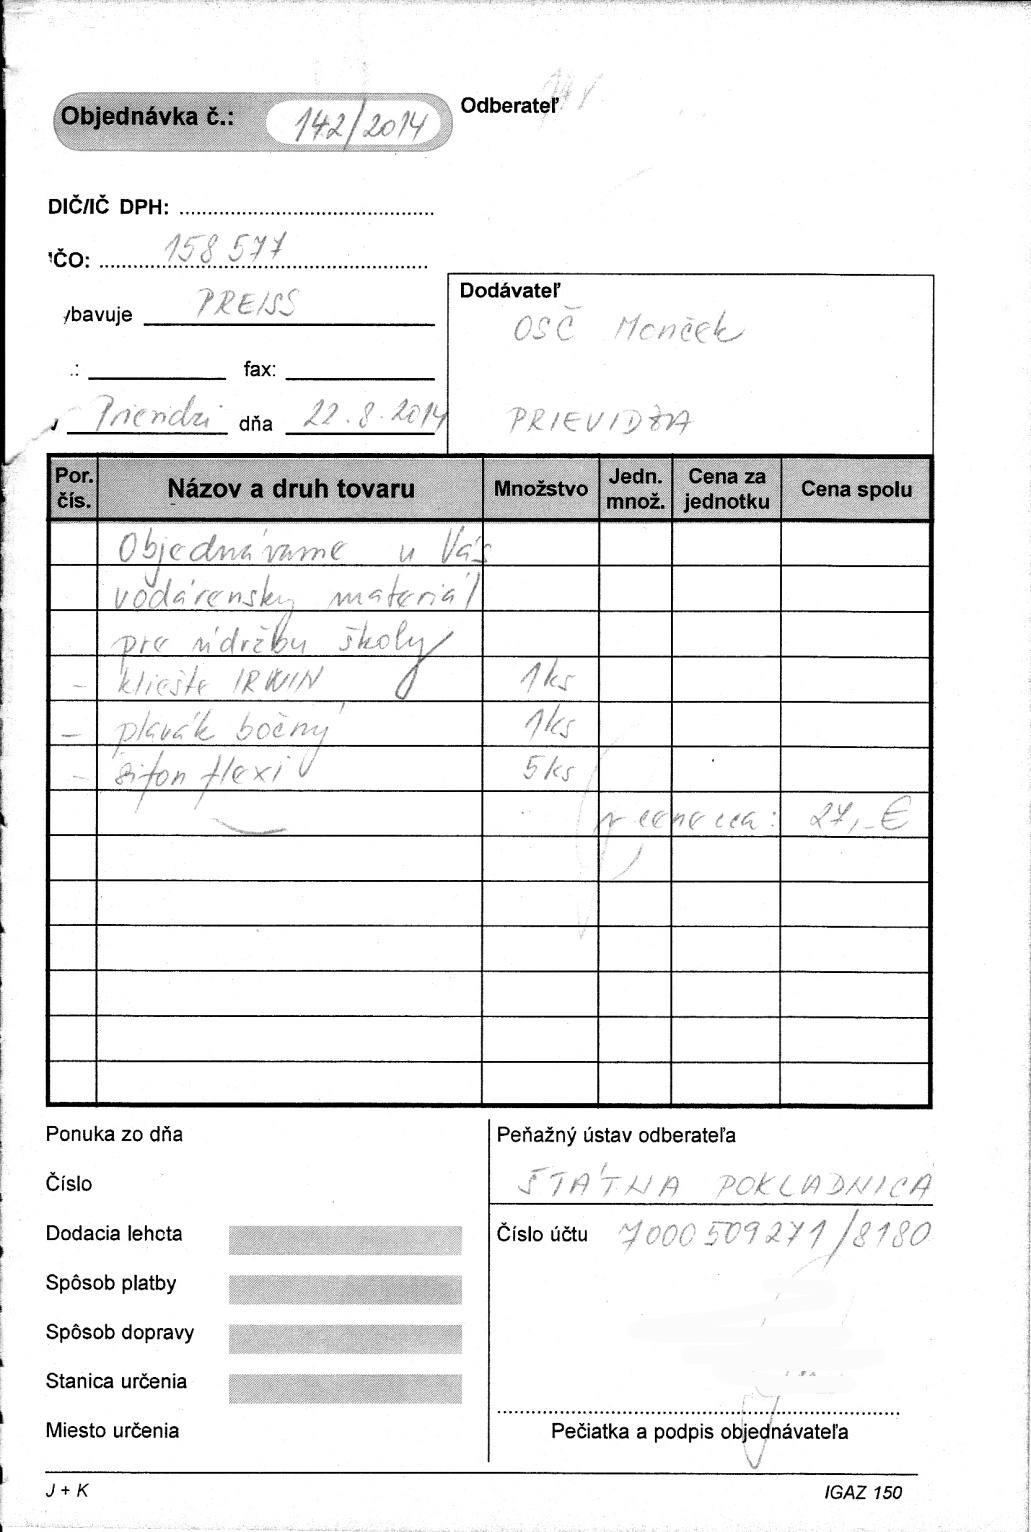 Objednávka č.: 142/2014
Odberateľ
DIČ/IČ DPH:
IČO: 158 577
ybavuje PREISS
.: fax:
Prievidzi dňa 22.8.2014
Dodávateľ
OSČ Monček
PRIEVIDZA
Por. čís.
Názov a druh tovaru
Množstvo
Jedn. množ.
Cena za jednotku
Cena spolu
Objednávame u Vás
vodárensky materiál
pre údržbu školy
- kliešte IRWIN 1ks
- plavák bočný 1ks
- šifon flexi 5ks
v cene cca: 27,-€
Ponuka zo dňa
Číslo
Dodacia lehota
Spôsob platby
Spôsob dopravy
Stanica určenia
Miesto určenia
Peňažný ústav odberateľa
ŠTÁTNA POKLADNICA
Číslo účtu 7000509271/8180
Pečiatka a podpis objednávateľa
J + K
IGAZ 150